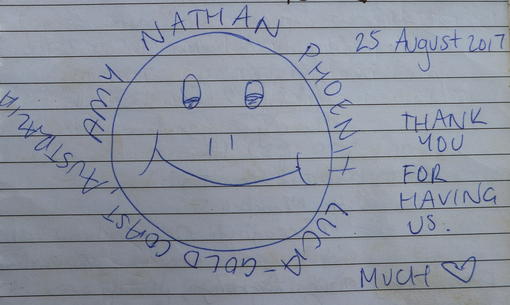 AMY NATHAN PHOENIX LUCIA - GOLD COAST, AUSTRALIA
25 August 2017
THANK
YOU
FOR
HAVING
US.
MUCH ♡